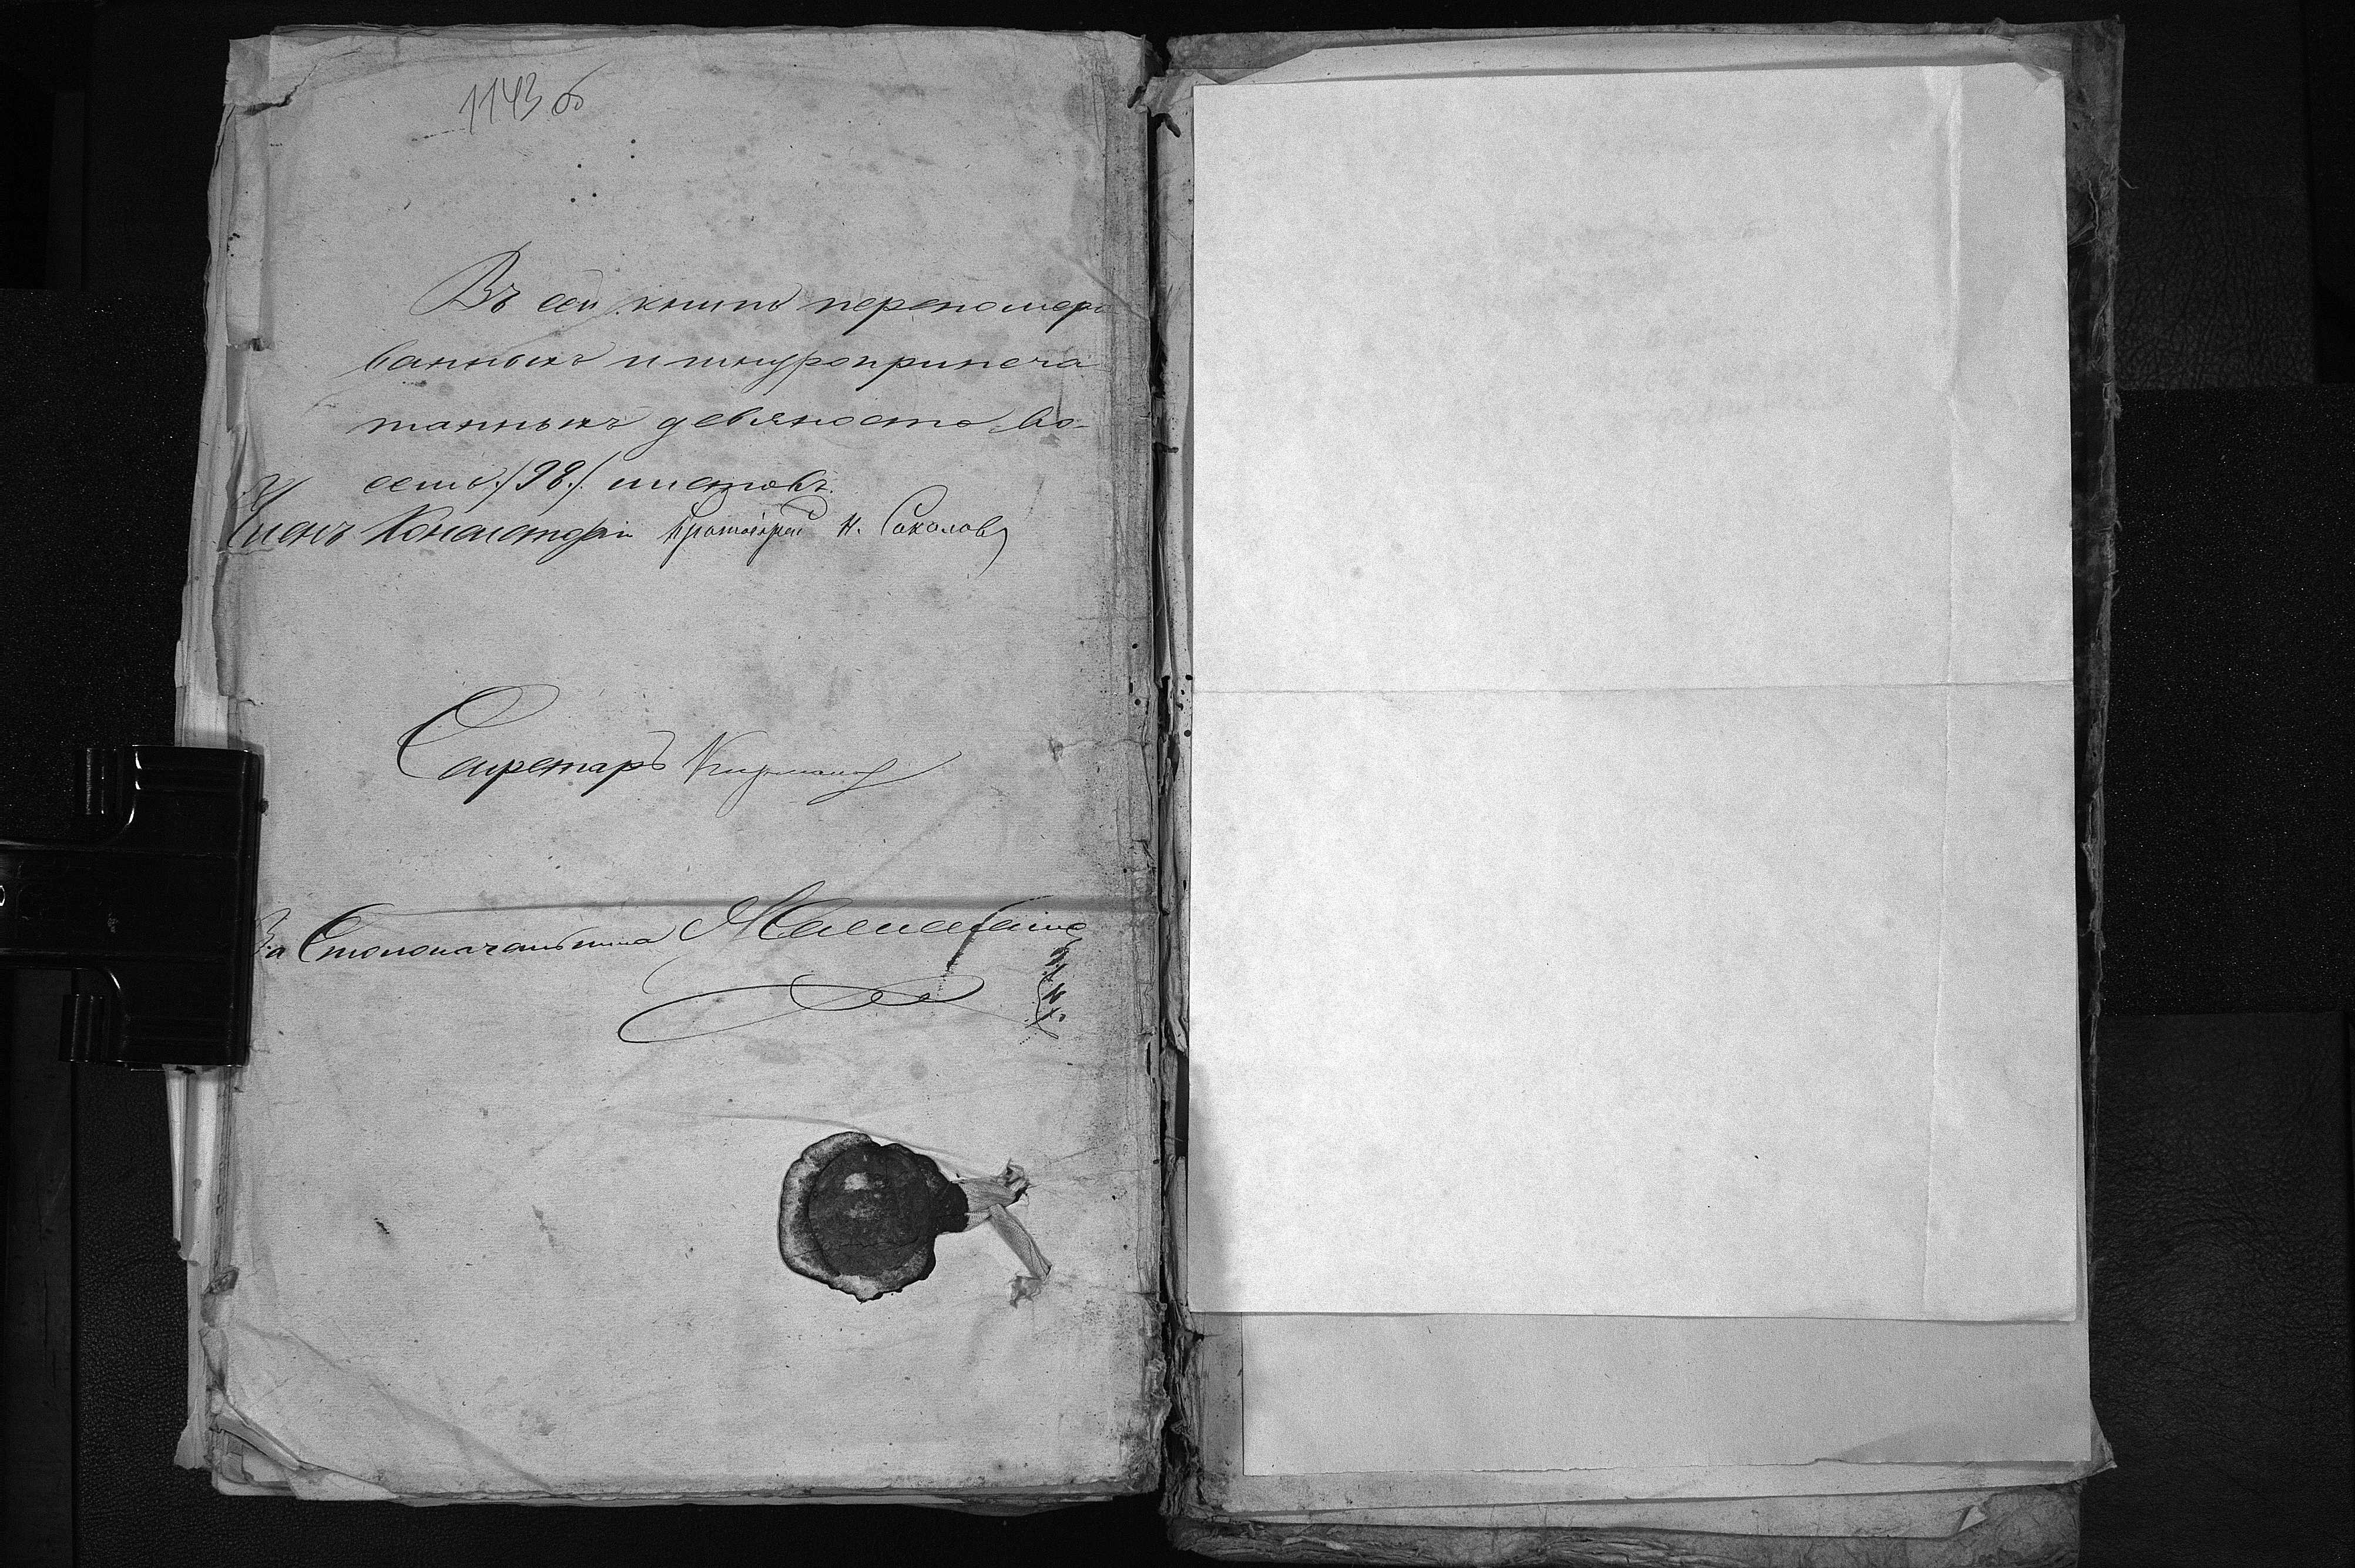 1143 об
Въ сей книгѣ переномеро
ванныхъ и шнуроприпеча
танныхъ девяносто во-
семь /98./ листовъ.
Членъ Консисторіи Протоіерей Н. Соколовъ
Секретарь
За Столоначальника